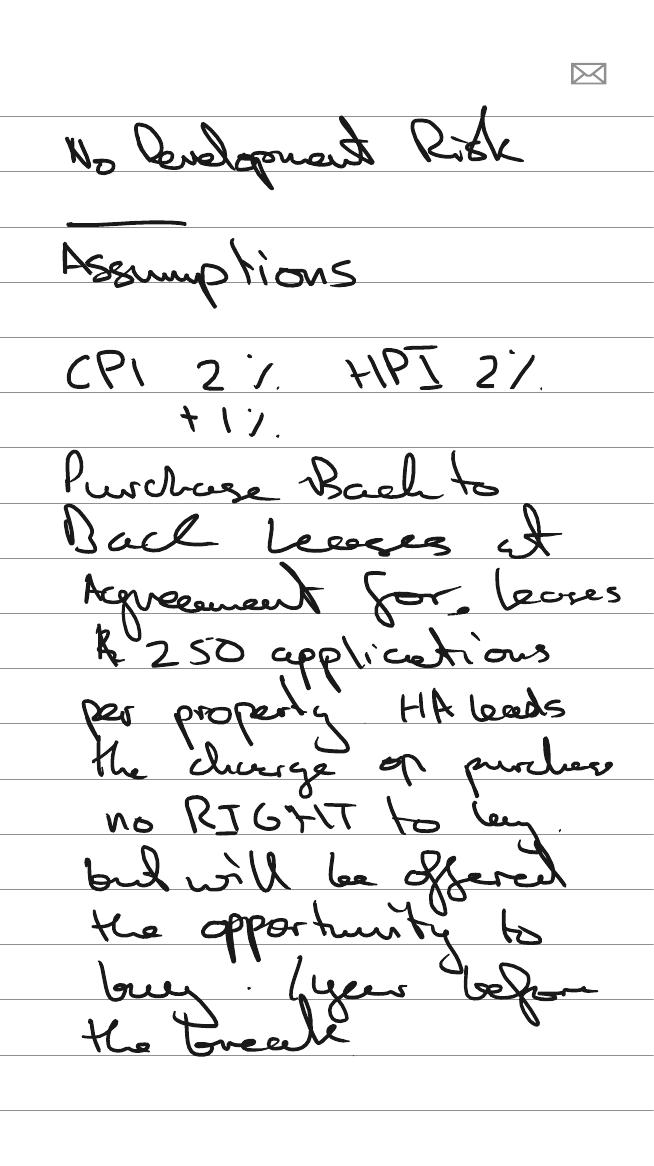 No Development Risk
Assumptions
CPI 2% HPI 2%
+1%
Purchase Back to
Back leases at
Agreement for leases
250 applications
per property HA leads
the charge on purchase
no RIGHT to buy.
but will be offered
the opportunity to
buy. 1 year before
the break